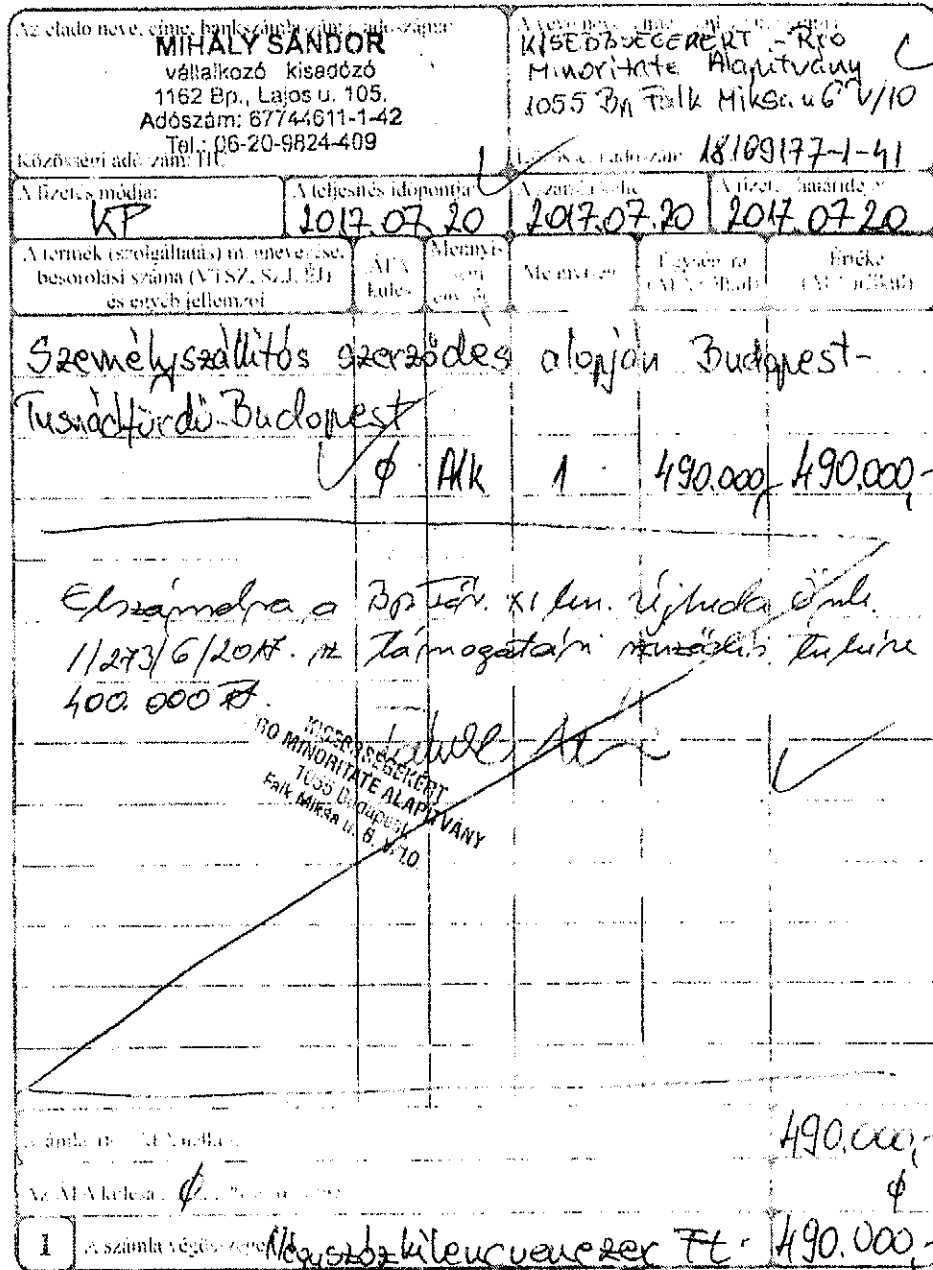 Az eladó neve, címe, bankszámlaszáma, adószáma:
MIHÁLY SÁNDOR
vállalkozó kisadózó
1162 Bp., Lajos u. 105.
Adószám: 67744611-1-42
Tel.: 06-20-9824-409
Közösségi adószám: HU
KISEBBSÉGEKÉRT - Pro
Minoritate Alapítvány
1055 Bp Falk Miksa u 6 V/10
18109177-1-41
A fizetés módja:
KP
A teljesítés időpontja:
2017.07.20
2017.07.20
2017.07.20
A termék (szolgáltatás) megnevezése,
besorolási száma (VTSZ, SZJ, ÉJ)
és egyéb jellemzői
ÁFA
kulcs
Mennyi-
ségi
egység
Mennyiség
Egységára
(ÁFA nélkül)
Értéke
(ÁFA nélkül)
Személyszállítás szerződés alapján Budapest-
Tusnádfürdő-Budapest
φ Alk 1 490.000,- 490.000,-
Elszámolva a Bp Főv. XI ker. Újbuda Önk.
1/273/6/2017. sz támogatási szerződés terhére
400.000 Ft.
KISEBBSÉGEKÉRT
PRO MINORITATE ALAPÍTVÁNY
1055 Budapest,
Falk Miksa u. 6. V/10.
490.000,-
φ φ
1 A számla végösszege: Négyszázkilencvenezer Ft. 490.000,-